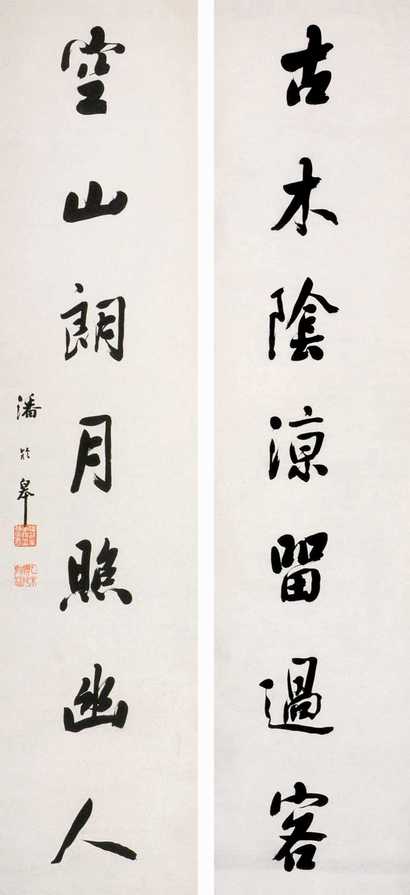 古木陰涼留過客
空山朗月照幽人
潘齡皋